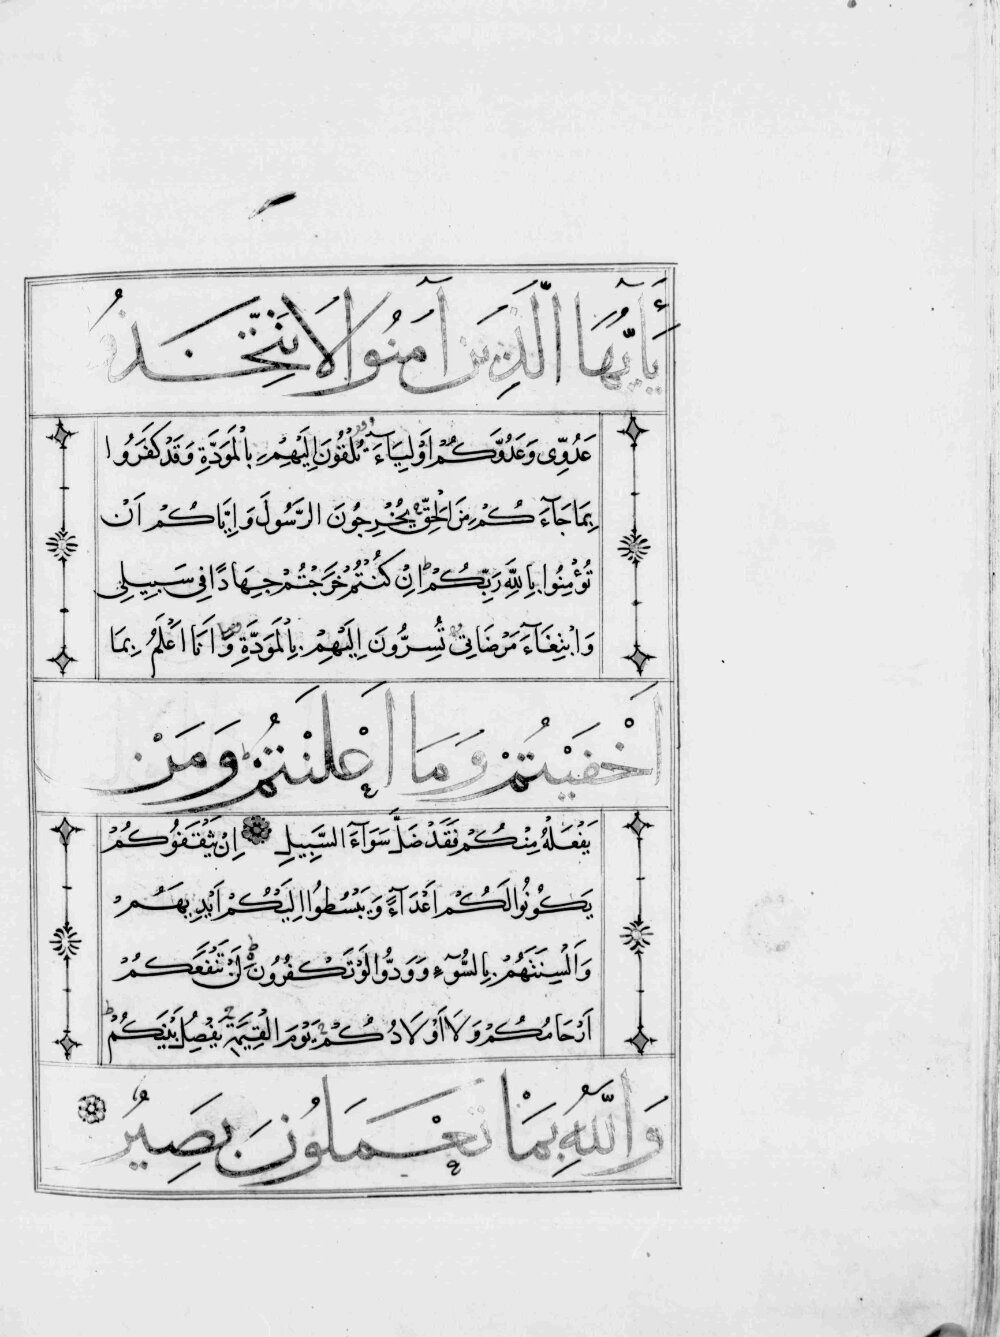 يَأَيُّهَا الَّذِينَ آمَنُوا لَا تَتَّخِذُوا
عَدُوِّى وَعَدُوَّكُمْ اَوْلِيَآءَ تُلْقُونَ اِلَيْهِمْ بِالْمَوَدَّةِ وَقَدْ كَفَرُوا
بِمَا جَآءَكُمْ مِنَ الْحَقِّ يُخْرِجُونَ الرَّسُولَ وَاِيَّاكُمْ اَنْ
تُؤْمِنُوا بِاللَّهِ رَبِّكُمْ اِنْ كُنْتُمْ خَرَجْتُمْ جِهَادًا فِى سَبِيلِى
وَابْتِغَآءَ مَرْضَاتِى تُسِرُّونَ اِلَيْهِمْ بِالْمَوَدَّةِ وَاَنَا اَعْلَمُ بِمَا
اَخْفَيْتُمْ وَمَا اَعْلَنْتُمْ وَمَنْ
يَفْعَلْهُ مِنْكُمْ فَقَدْ ضَلَّ سَوَآءَ السَّبِيلِ اِنْ يَثْقَفُوكُمْ
يَكُونُوا لَكُمْ اَعْدَآءً وَيَبْسُطُوا اِلَيْكُمْ اَيْدِيَهُمْ
وَاَلْسِنَتَهُمْ بِالسُّوٓءِ وَوَدُّوا لَوْ تَكْفُرُونَ لَنْ تَنْفَعَكُمْ
اَرْحَامُكُمْ وَلَا اَوْلَادُكُمْ يَوْمَ الْقِيٰمَةِ يَفْصِلُ بَيْنَكُمْ
وَاللَّهُ بِمَا تَعْمَلُونَ بَصِيرٌ